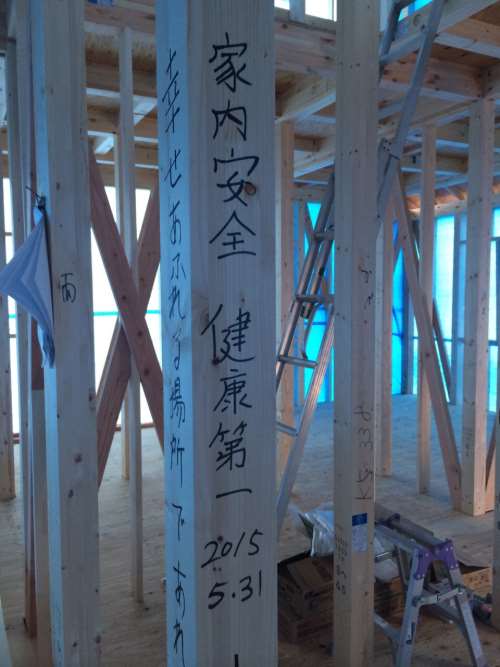 家内安全 健康第一
2015
5.31
幸せあふれる場所であれ
南